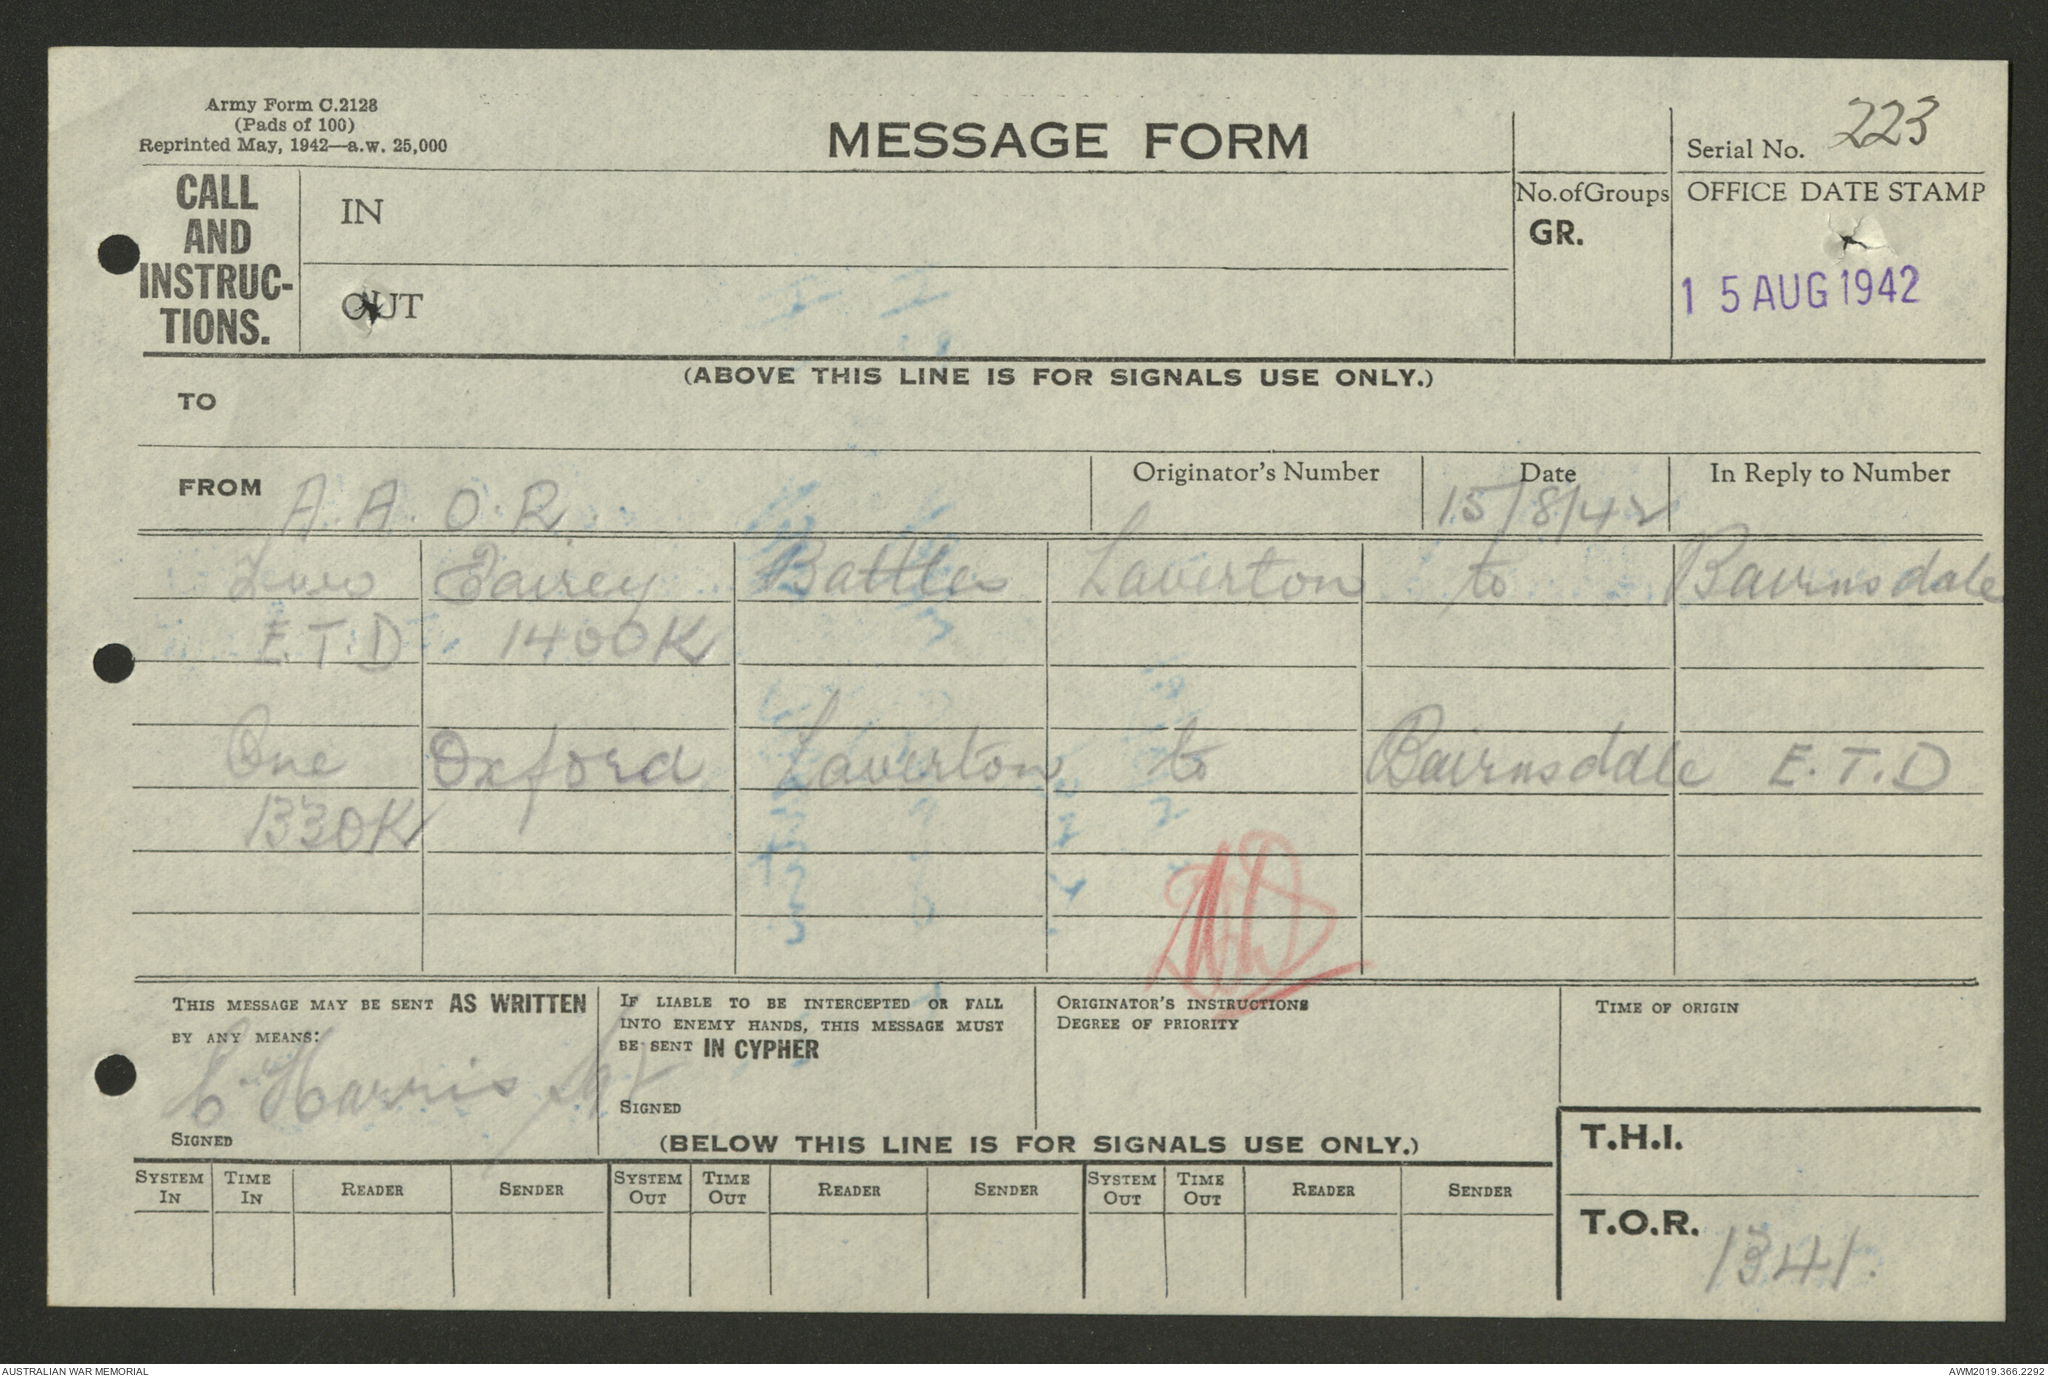 Army Form C.2128
(Pads of 100)
Reprinted May, 1942—a.w. 25,000
MESSAGE FORM
Serial No. 223
CALL AND INSTRUC-TIONS.
IN
OUT
No. of Groups
GR.
OFFICE DATE STAMP
15 AUG 1942
(ABOVE THIS LINE IS FOR SIGNALS USE ONLY.)
TO
FROM A.A.O.R.
Originator's Number
Date 15/8/42
In Reply to Number
Two Fairey Battles Laverton to Bairnsdale
E.T.D 1400K
One Oxford Laverton to Bairnsdale E.T.D
1330K
THIS MESSAGE MAY BE SENT AS WRITTEN
BY ANY MEANS:
C Harris
SIGNED
IF LIABLE TO BE INTERCEPTED OR FALL
INTO ENEMY HANDS, THIS MESSAGE MUST
BE SENT IN CYPHER
SIGNED
ORIGINATOR'S INSTRUCTIONS
DEGREE OF PRIORITY
TIME OF ORIGIN
(BELOW THIS LINE IS FOR SIGNALS USE ONLY.)
T.H.I.
SYSTEM IN TIME IN READER SENDER SYSTEM OUT TIME OUT READER SENDER SYSTEM OUT TIME OUT READER SENDER
T.O.R. 1341.
AUSTRALIAN WAR MEMORIAL
AWM2019.366.2292